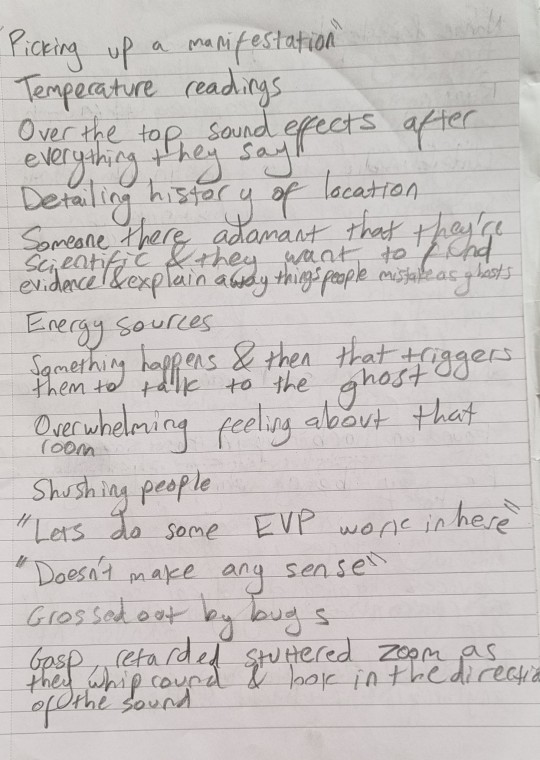 "Picking up a manifestation"
Temperature readings
Over the top sound effects after
everything they say
Detailing history of location
Someone there adamant that they're
scientific & they want to find
evidence & explain away things people mistake as ghosts
Energy sources
Something happens & then that triggers
them to talk to the ghost
Overwhelming feeling about that
room
Shushing people
"Lets do some EVP work in here"
"Doesn't make any sense"
Grossed out by bugs
Gasp, retarded stuttered zoom as
they whip round & look in the directio
of the sound